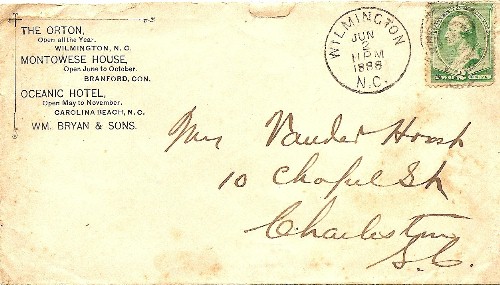 THE ORTON,
Open all the Year.
WILMINGTON, N. C.
MONTOWESE HOUSE,
Open June to October.
BRANFORD, CON.
OCEANIC HOTEL,
Open May to November.
CAROLINA BEACH, N. C.
WM. BRYAN & SONS.
WILMINGTON
JUN
2
11 PM
1886
N.C.
Vander Horst
10 Chapel St
Charleston
S.C.